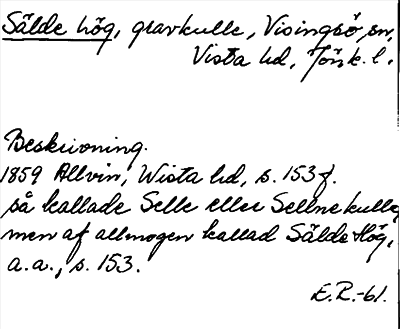 Sälde hög, gravkulle, Visingsö sn,
Vista hd, Jönk. l.
Beskrivning.
1859 Allvin, Wista hd, s. 153 f.
så kallade Selle eller Sellnekulle
men af allmogen kallad Sälde Hög,
a.a., s. 153.
E.R.-61.